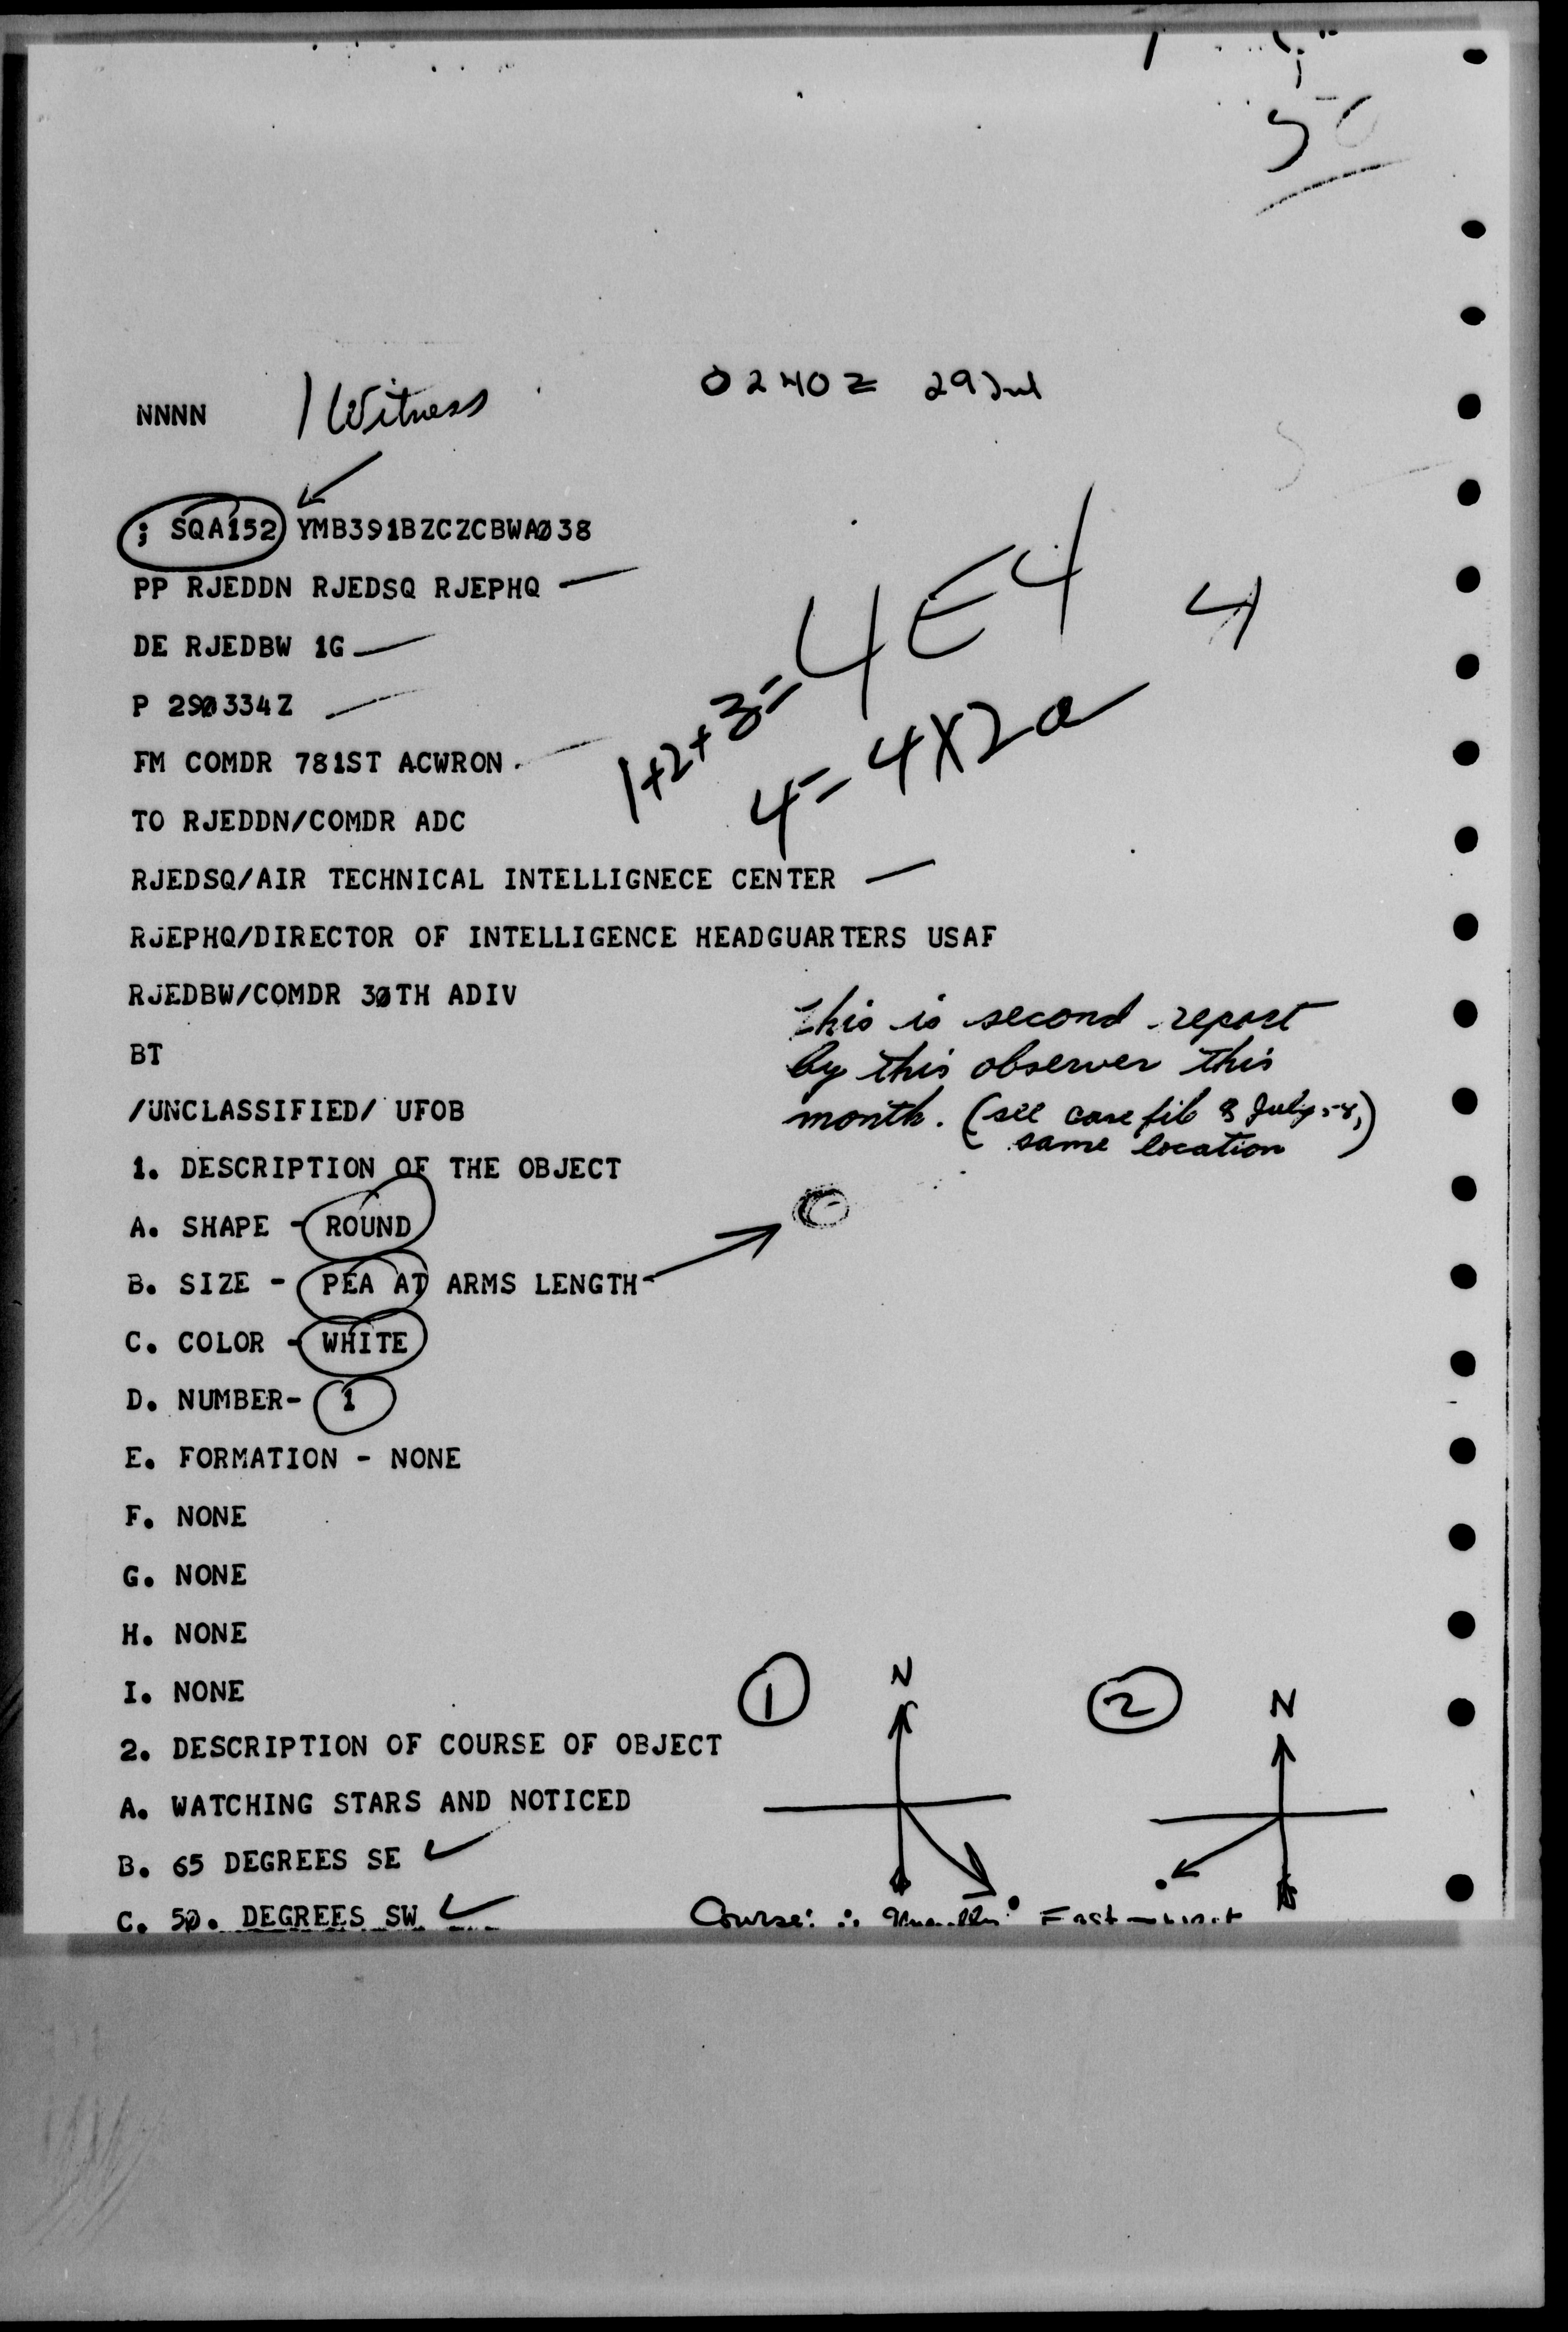 50
NNNN 1 Witness 0240Z 29 Jul
; SQA152 YMB391BZCZCBWAØ38
PP RJEDDN RJEDSQ RJEPHQ
4E4 4
DE RJEDBW 1G
P 29Ø334Z
1+2+3=
4=4X2a
FM COMDR 781ST ACWRON
TO RJEDDN/COMDR ADC
RJEDSQ/AIR TECHNICAL INTELLIGNECE CENTER
RJEPHQ/DIRECTOR OF INTELLIGENCE HEADGUARTERS USAF
RJEDBW/COMDR 3ØTH ADIV
This is second report
by this observer this
month. (see case file 8 July 58,
same location)
BT
/UNCLASSIFIED/ UFOB
1. DESCRIPTION OF THE OBJECT
A. SHAPE - ROUND
B. SIZE - PEA AT ARMS LENGTH
C. COLOR - WHITE
D. NUMBER- 1
E. FORMATION - NONE
F. NONE
G. NONE
H. NONE
I. NONE
1 N 2 N
2. DESCRIPTION OF COURSE OF OBJECT
A. WATCHING STARS AND NOTICED
B. 65 DEGREES SE
C. 5Ø. DEGREES SW
Course: ∴ Generally East - West